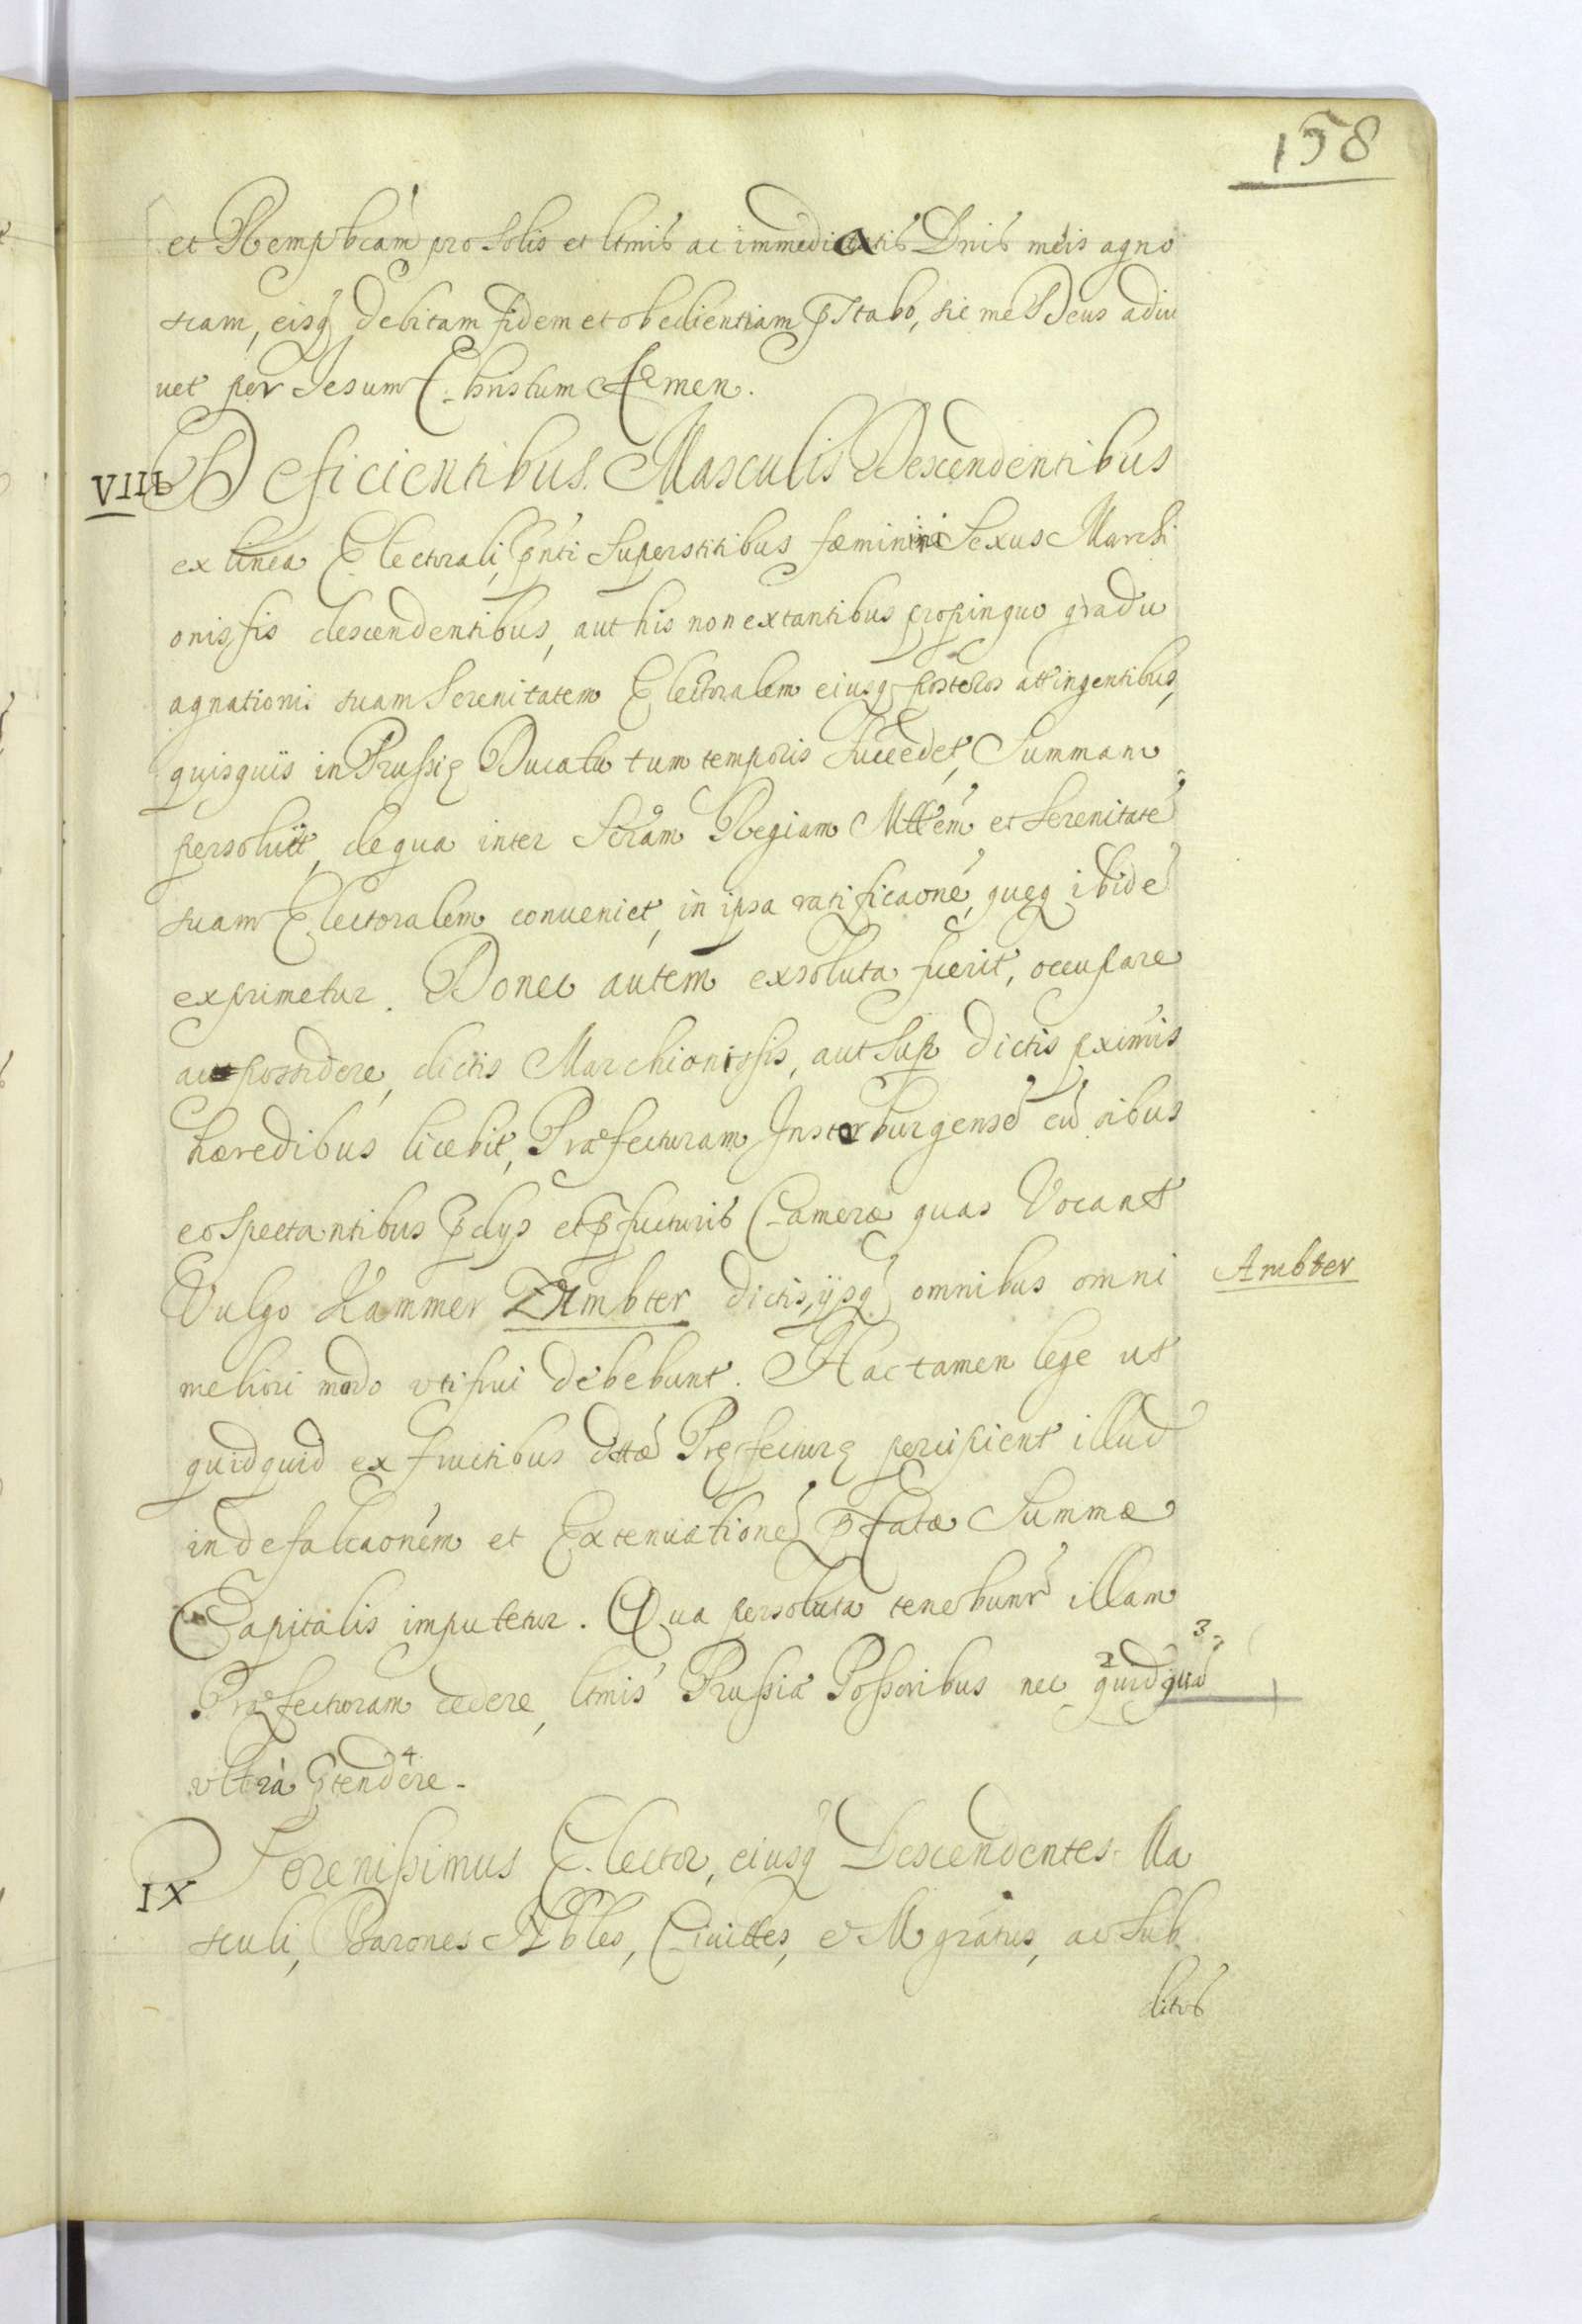 158
et Rempbcam pro solis et ltmis ac immediatis Dnis meis agno
scam, eisq debitam fidem et obedientiam pstabo, sic me Deus adiu
uet per Jesum Christum Amen.
VIII Deficientibus Masculis Descendentibus
ex linea Electorali, pnti superstitibus fæminini Sexus Marchi
onissis descendentibus, aut his non extantibus propinquo gradu
agnationis suam Serenitatem Electoralem eiusq posteros attingentibus,
quisquis in Prussię Ducatu tum temporis succedet, Summam
persoluet, de qua inter Scram Regiam Mttem et Serenitatē
suam Electoralem conueniet, in ipsa ratificaone, quęq ibidē
exprimetur. Donec autem exsoluta fuerit, occupare
ac possidere, dictis Marchionissis, aut sup dictis pximis
hæredibus licebit, Præfecturam Insterburgensē cū oibus
eo spectantibus pdijs et pfecturis Cameræ quas Vocant
Vulgo Kammer Ambter dictis, ijsq omnibus omni
Ambter
meliori modo vti frui debebunt. Hac tamen lege ut
quidquid ex fructibus dttæ Pręfecturę percipient illud
in defalcaonem et Extenuationē pfatæ Summæ
Capitalis imputetur. Qua persoluta tenebunr illam
Præfecturam cedere, ltmis Prussiæ Possoribus nec 2 quidquā 3
vltrà ptendere 4.
IX Serenissimus Elector, eiusq Descendentes Ma
sculi, Barones Nobles, Ciuittes, et Mgratus, ac Sub
ditos